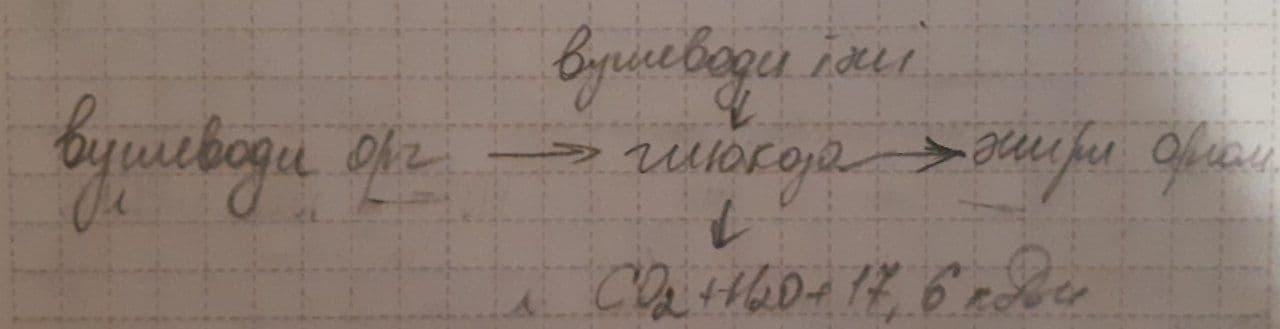 вуглеводи їжі
↓
вуглеводи орг → глюкоза → жири орган
↓
CO₂ + H₂O + 17,6 кДж